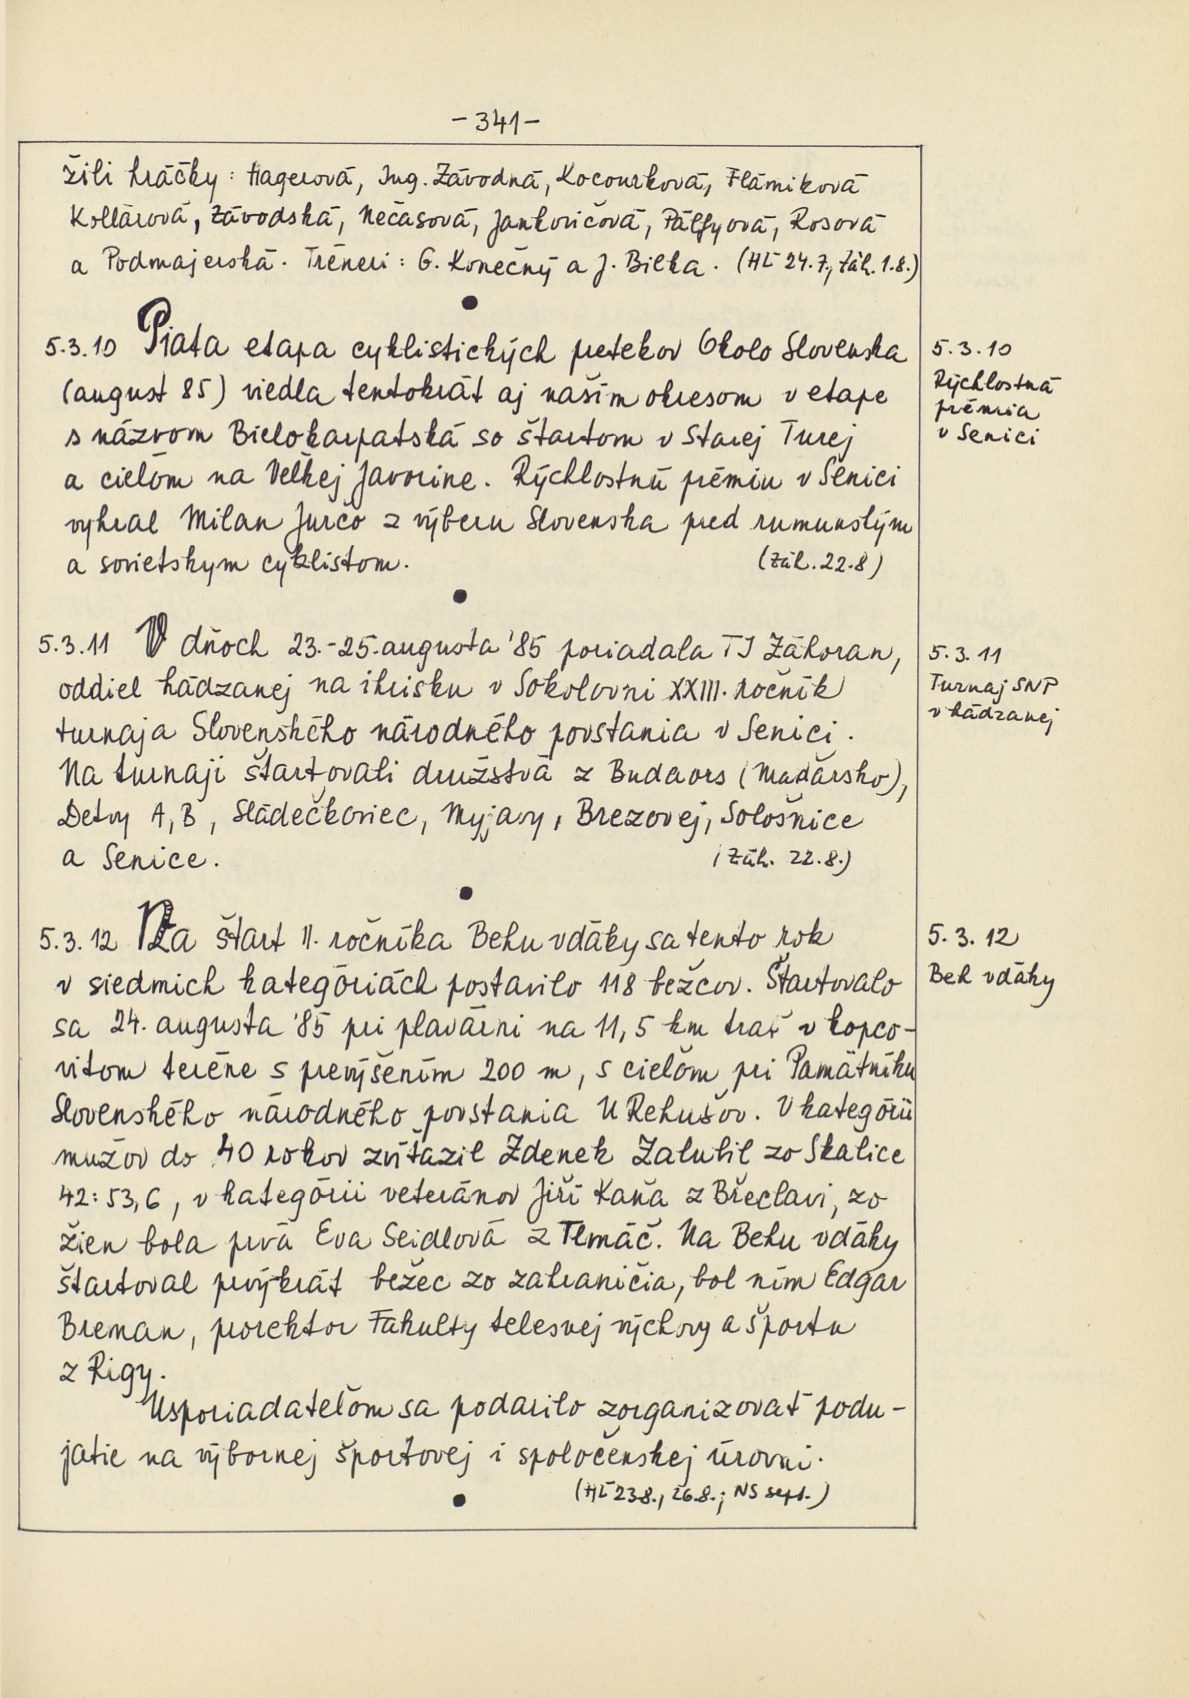 -341-
žili hráčky: Hagerová, Ing. Závodná, Kocourková, Flámiková
Kollárová, Závodská, Nečasová, Jankovičová, Pálfyová, Rosová
a Podmajerská. Tréneri: G. Konečný a J. Bilka. (HĽ 24.7., Záh. 1.8.)
5.3.10 Piata etapa cyklistických pretekov Okolo Slovenska
(august 85) viedla tentokrát aj naším okresom v etape
s názvom Bielokarpatská so štartom v Starej Turej
a cieľom na Veľkej Javorine. Rýchlostnú prémiu v Senici
vyhral Milan Jurčo z výberu Slovenska pred rumunským
a sovietskym cyklistom. (Záh. 22.8)
5.3.10
Rýchlostná
prémia
v Senici
5.3.11 V dňoch 23.-25. augusta '85 poriadala TJ Záhoran,
oddiel hádzanej na ihrisku v Sokolovni XXIII. ročník
turnaja Slovenského národného povstania v Senici.
Na turnaji štartovali družstvá z Budaors (Maďarsko),
Detvy A, B, Sládečkoviec, Myjavy, Brezovej, Sološnice
a Senice. (Záh. 22.8.)
5.3.11
Turnaj SNP
v hádzanej
5.3.12 Na štart II. ročníka Behu vďaky sa tento rok
v siedmich kategóriách postavilo 118 bežcov. Štartovalo
sa 24. augusta '85 pri plavárni na 11,5 km trať v kopco-
vitom teréne s prevýšením 200 m, s cieľom pri Pamätníku
Slovenského národného povstania U Rehušov. V kategórii
mužov do 40 rokov zvíťazil Zdenek Zalubil zo Skalice
42:53,6, v kategórii veteránov Jiří Kaňa z Břeclavi, zo
žien bola prvá Eva Seidlová z Tlmáč. Na Behu vďaky
štartoval prvýkrát bežec zo zahraničia, bol ním Edgar
Breman, prorektor Fakulty telesnej výchovy a športu
z Rigy.
Usporiadateľom sa podarilo zorganizovať podu-
jatie na výbornej športovej i spoločenskej úrovni.
(HĽ 23.8., 26.8.; NS sept.)
5.3.12
Beh vďaky